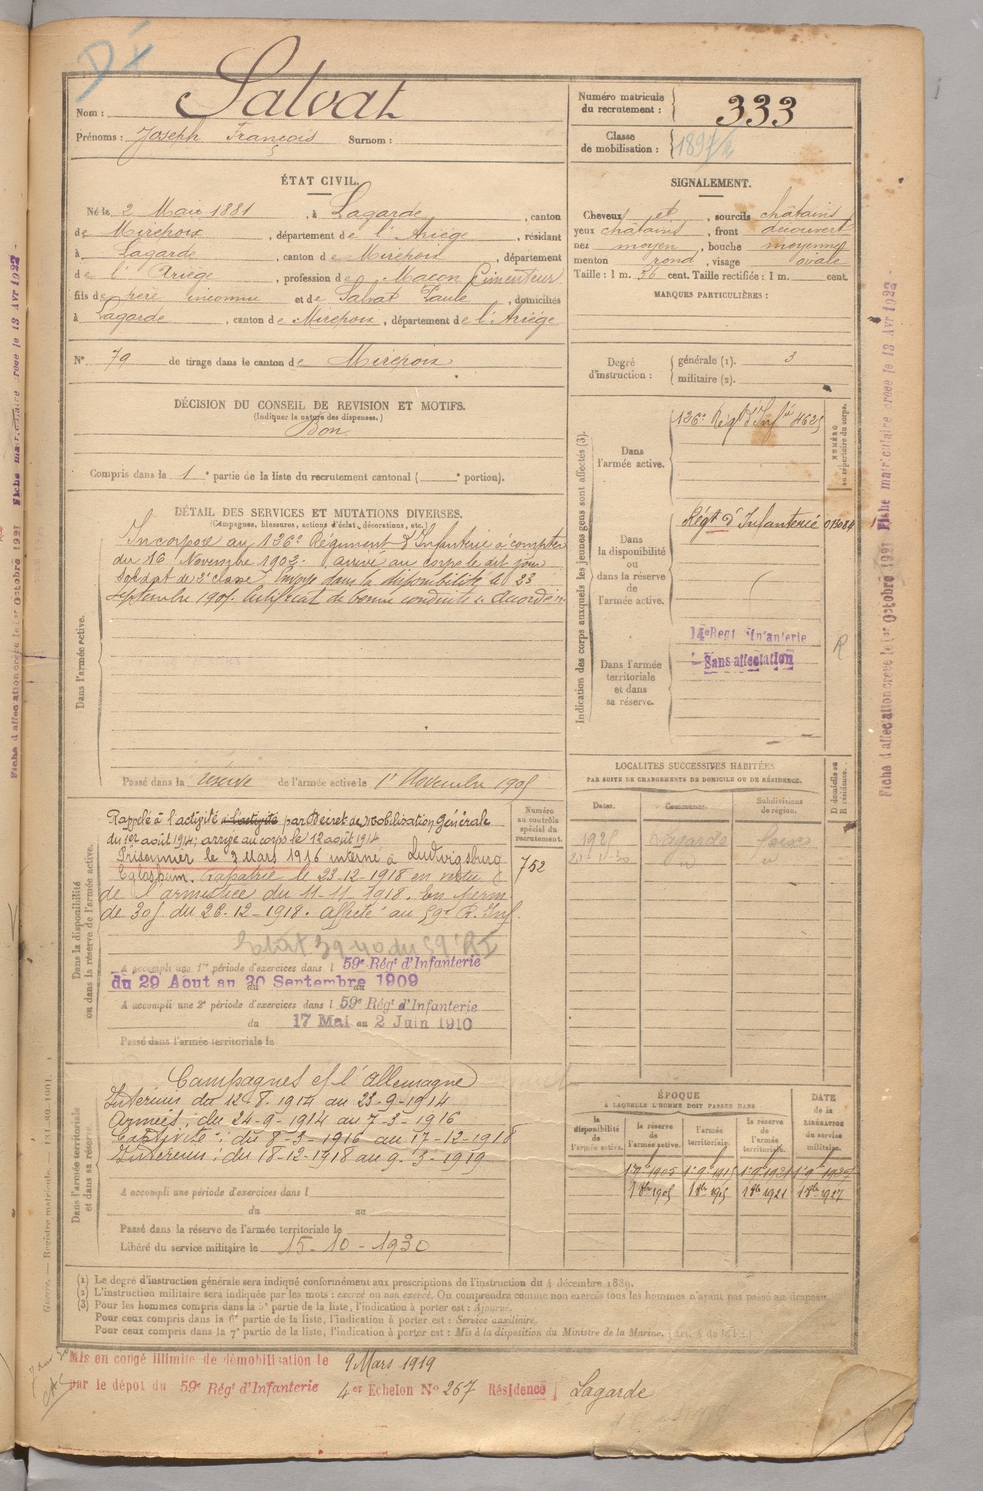 DX
Nom : Salvat
Prénoms : Joseph François Surnom :
Numéro matricule du recrutement : 333
Classe de mobilisation :
ÉTAT CIVIL.
Né le 2 Mai 1881, à Lagarde, canton
de Mirepoix, département de l'Ariége, résidant
à Lagarde, canton de Mirepoix, département
de l'Ariége, profession de Maçon Cimenteur
fils de père inconnu et de Salvat Paule, domiciliés
à Lagarde, canton de Mirepoix, département de l'Ariége
N° 79 de tirage dans le canton de Mirepoix
SIGNALEMENT.
Cheveux et, sourcils châtains
yeux châtains, front découvert
nez moyen, bouche moyenne
menton rond, visage ovale
Taille : 1 m. 56 cent. Taille rectifiée : 1 m. cent.
MARQUES PARTICULIÈRES :
Degré d'instruction : générale (1). 3
militaire (2).
DÉCISION DU CONSEIL DE REVISION ET MOTIFS.
(Indiquer la nature des dispenses.)
Bon
Compris dans la 1e partie de la liste du recrutement cantonal ( e portion).
DÉTAIL DES SERVICES ET MUTATIONS DIVERSES.
(Campagnes, blessures, actions d'éclat, décorations, etc.)
Dans l'armée active.
Incorporé au 136e Régiment d'Infanterie à compter
du 16 Novembre 1902. arrivé au corps le dit jour
Soldat de 2e classe. Envoyé dans la disponibilité le 23
septembre 1905. Certificat de bonne conduite " Accordé "
Passé dans la réserve de l'armée active le 1er Novembre 1905
Indication des corps auxquels les jeunes gens sont affectés (3).
NUMÉRO au répertoire du corps.
Dans l'armée active.
136e Régt d'Infie 4625
Dans la disponibilité ou dans la réserve de l'armée active.
Régt d'Infanterie
Dans l'armée territoriale et dans sa réserve.
14e Regt Infanterie
Sans affectation
R
LOCALITÉS SUCCESSIVES HABITÉES
PAR SUITE DE CHANGEMENTS DE DOMICILE OU DE RÉSIDENCE.
Dates. Communes. Subdivisions de région. D domicile ou R résidence.
Lagarde
Dans la disponibilité ou dans la réserve de l'armée active.
Numéro au contrôle spécial du recrutement.
752
Rappelé à l'activité à l'activité par Décret de Mobilisation Générale
du 1er août 1914; arrivé au corps le 12 août 1914
Prisonnier le 7 Mars 1916 interné à Ludwigsburg
Eglosheim. Rapatrié le 23-12-1918 en vertu
de l'armistice du 11-11-1918. En perm
de 30 j. du 26-12-1918. affecté au 59e R. Inf.
A accompli une 1re période d'exercices dans l 59e Régt d'Infanterie
du 29 Aout au 20 Septembre 1909
A accompli une 2e période d'exercices dans l 59e Régt d'Infanterie
du 17 Mai au 2 Juin 1910
Passé dans l'armée territoriale le
Dans l'armée territoriale et dans sa réserve.
Campagnes c/ l'Allemagne
Intérieur du 12-8-1914 au 23-9-1914
Armées : du 24-9-1914 au 7-3-1916
Captivité : du 8-3-1916 au 17-12-1918
Intérieur : du 18-12-1918 au 9-3-1919
A accompli une période d'exercices dans l
du au
Passé dans la réserve de l'armée territoriale le
Libéré du service militaire le 15-10-1930
ÉPOQUE
À LAQUELLE L'HOMME DOIT PASSER DANS
la disponibilité de l'armée active. la réserve de l'armée active. l'armée territoriale. la réserve de l'armée territoriale. DATE de la LIBÉRATION du service militaire.
(1) Le degré d'instruction générale sera indiqué conformément aux prescriptions de l'instruction du 4 décembre 1889.
(2) L'instruction militaire sera indiquée par les mots : exercé ou non exercé. On comprendra comme non exercés tous les hommes n'ayant pas passé au drapeau.
(3) Pour les hommes compris dans la 5e partie de la liste, l'indication à porter est : Ajourné.
Pour ceux compris dans la 6e partie de la liste, l'indication à porter est : Service auxiliaire.
Pour ceux compris dans la 7e partie de la liste, l'indication à porter est : Mis à la disposition du Ministre de la Marine.
Mis en congé illimité de démobilisation le 9 Mars 1919
par le dépot du 59e Régt d'Infanterie 4er Echelon No 267 Résidence Lagarde
Fiche d'affectation créée le 1er Octobre 1921 Fiche matriculaire créée le 13 Avr 1922